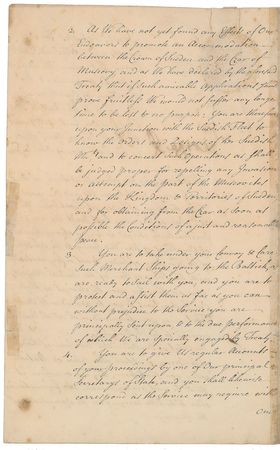 2. As We have not yet found any Effects of Our
Endeavors to promote an Accomodation
between the Crown of Sueden and the Czar of
Muscovy, and as We have declared by the
Treaty that if Such amicable Applications Should
prove fruitless We would not Suffer any long
time to be lost to no purpose; You are therefore
upon your junction with the Suedish Fleet to
know the orders and designs of His Suedish
Maty and to concert such Operations as shall
be judged proper for repelling any Invasion
or Attempt on the Part of the Muscovites
upon the Kingdom & Territories of Sueden
and for obtaining from the Czar as Soon as
possible the Conditions of a just and reasonable
peace.
3. You are to take under your Convoy & Care
Such Merchant Ships going to the Baltick, as
are ready to Sail with you, and you are to
protect and assist them as far as you can
without prejudice to the Service you are
principally Sent upon & to the due performance
of which We are Specially engaged by Treaty.
4. You are to give Us regular Accounts
of your proceedings by one of Our principal
Secretarys of State, and you shall likewise
correspond as the Service may require with
Our